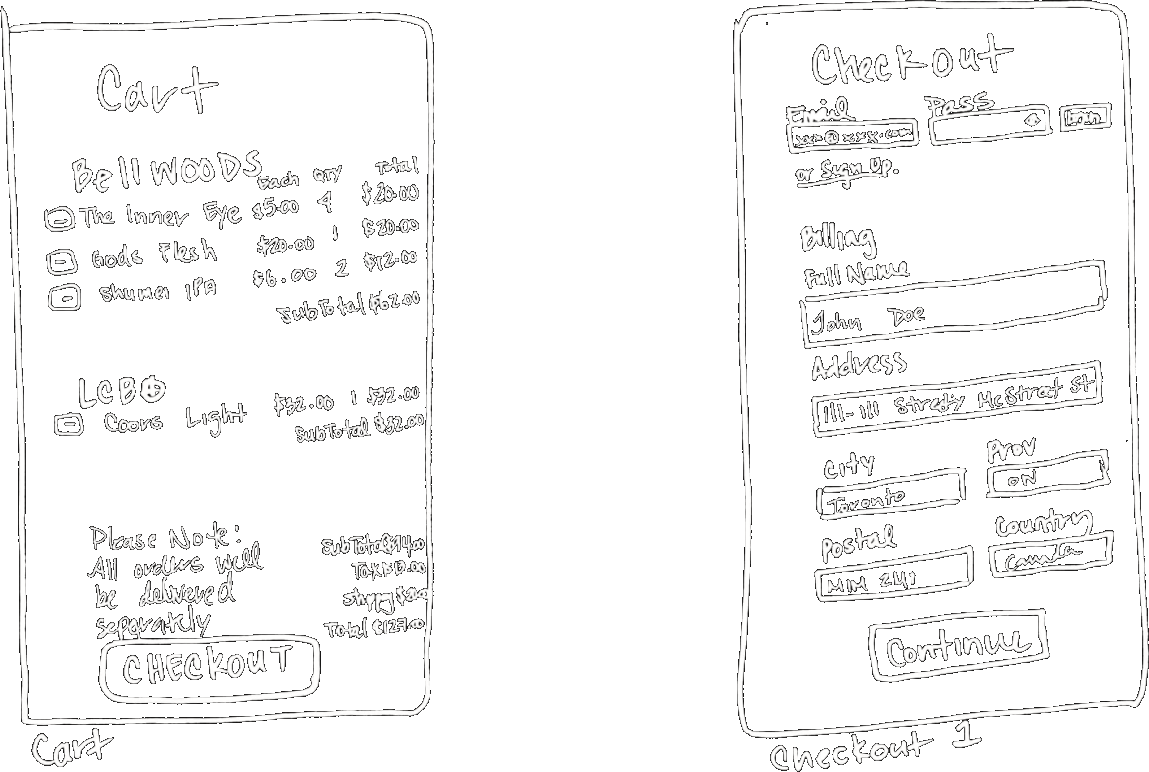 Cart
Bellwoods Each QTY Total
The Inner Eye $5.00 4 $20.00
Gods Flesh $20.00 1 $20.00
Shuma IPA $6.00 2 $12.00
SubTotal $62.00
LCBO
Coors Light $32.00 1 $32.00
SubTotal $32.00
Please Note:
All orders will
be delivered
separately
SubTotal
Tax
Total
CHECKOUT
Cart
Checkout
Email Pass
xxx@xxx.com
or Sign Up.
Billing
Full Name
John Doe
Address
111-111 Streety McStreet St
City Prov
Toronto ON
Postal Country
M1M 2Y1 Canada
Continue
Checkout 1